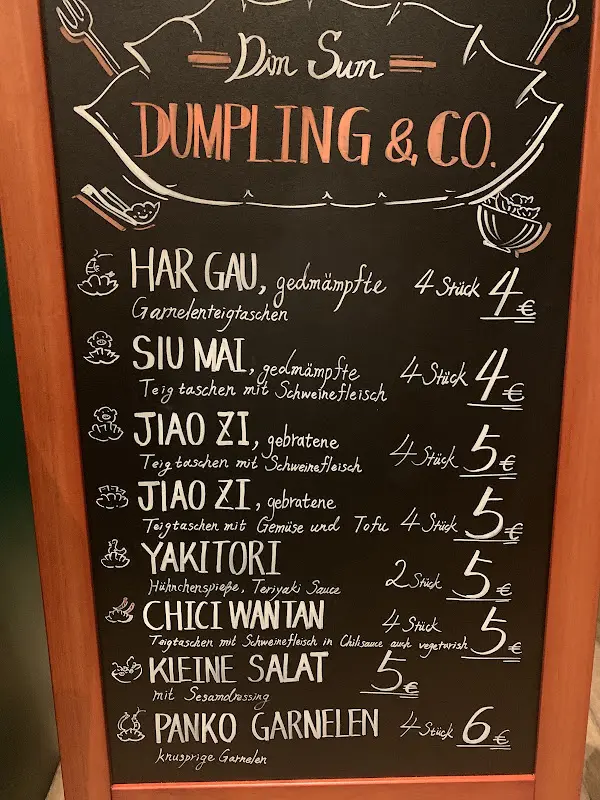 Dim Sum
DUMPLING & CO.
HAR GAU, gedmämpfte 4 Stück 4€
Garnelenteigtaschen
SIU MAI, gedmämpfte 4 Stück 4€
Teigtaschen mit Schweinefleisch
JIAO ZI, gebratene 4 Stück 5€
Teigtaschen mit Schweinefleisch
JIAO ZI, gebratene
Teigtaschen mit Gemüse und Tofu 4 Stück 5€
YAKITORI 2 Stück 5€
Hühnchenspieße, Teriyaki Sauce
CHICI WANTAN 4 Stück 5€
Teigtaschen mit Schweinefleisch in Chilisauce auch vegetarish
KLEINE SALAT 5€
mit Sesamdressing
PANKO GARNELEN 4 Stück 6€
knusprige Garnelen